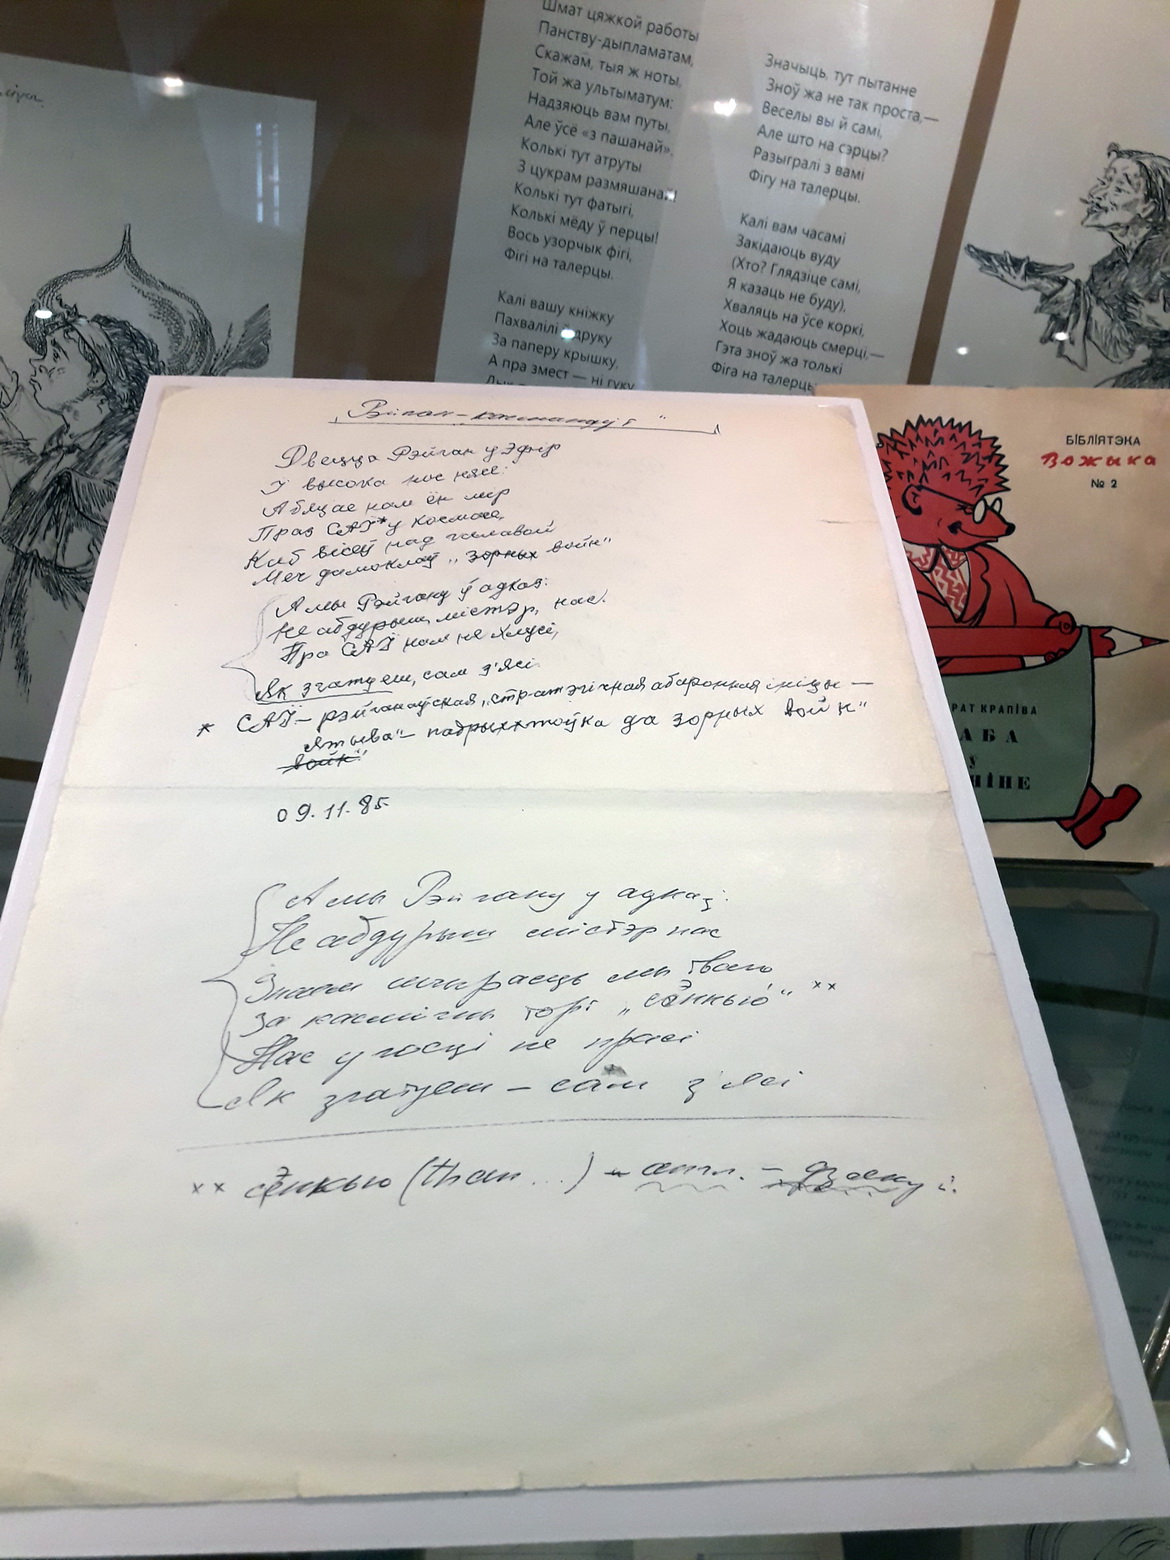 Шмат цяжкой работы
Панству-дыпламатам,
Скажам, тыя ж ноты,
Той жа ультыматум:
Надзяюць вам путы,
Але ўсё «з пашанай».
Колькі тут атруты
З цукрам размяшана
Колькі тут фатыгі,
Колькі мёду ў перцы!
Вось узорчык фігі,
Фігі на талерцы.
Калі вашу кніжку
Пахвалілі друку
За паперу крышку,
А пра змест — ні гуку
Значыць, тут пытанне
Зноў жа не так проста,—
Веселы вы й самі,
Але што на сэрцы?
Разыгралі з вамі
Фігу на талерцы.
Калі вам часамі
Закідаюць вуду
(Хто? Глядзіце самі,
Я казаць не буду),
Хваляць на ўсе коркі,
Хоць жадаюць смерці,—
Гэта зноў жа толькі
Фіга на талерцы
БІБЛІЯТЭКА
Вожыка
№ 2
РАТ КРАПІВА
АБА
У
ІНЕ
Рэйган у эфір
І высока нос нясе:
Абяцае нам ён мір
Праз САІ* у космасе,
Каб вісеў над галавой
Меч дамоклаў „зорных войн"
А мы Рэйгану ў адказ:
Не абдурыш, містэр, нас.
Пра САІ нам не хлусі,
Як згатуеш, сам з'ясі
* САІ – рэйганаўская „стратэгічная абаронная ініцы–
ятыва" – падрыхтоўка да зорных войн"
войн"
09.11.85
А мы Рэйгану у адказ:
Не абдурыш містэр нас
Знаем шчырасць мы тваю
За касмічны торг „сэнкью" ××
Нас у госці не прасі
Як згатуеш – сам з'ясі
×× сэнкью (than...) – англ. – дзякуй.